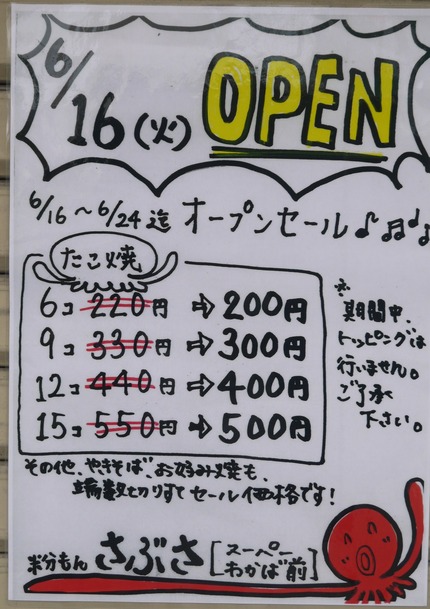 6/16(火) OPEN
6/16〜6/24迄 オープンセール♪♬♩♪
たこ焼
6コ 220円 ⇨ 200円
9コ 330円 ⇨ 300円
12コ 440円 ⇨ 400円
15コ 550円 ⇨ 500円
※期間中、
トッピングは
行いません。
ご了承
下さい。
その他、やきそば、お好み焼も、
端数切りすて セール価格です!
粉もん さぶさ [スーパー
わかば前]